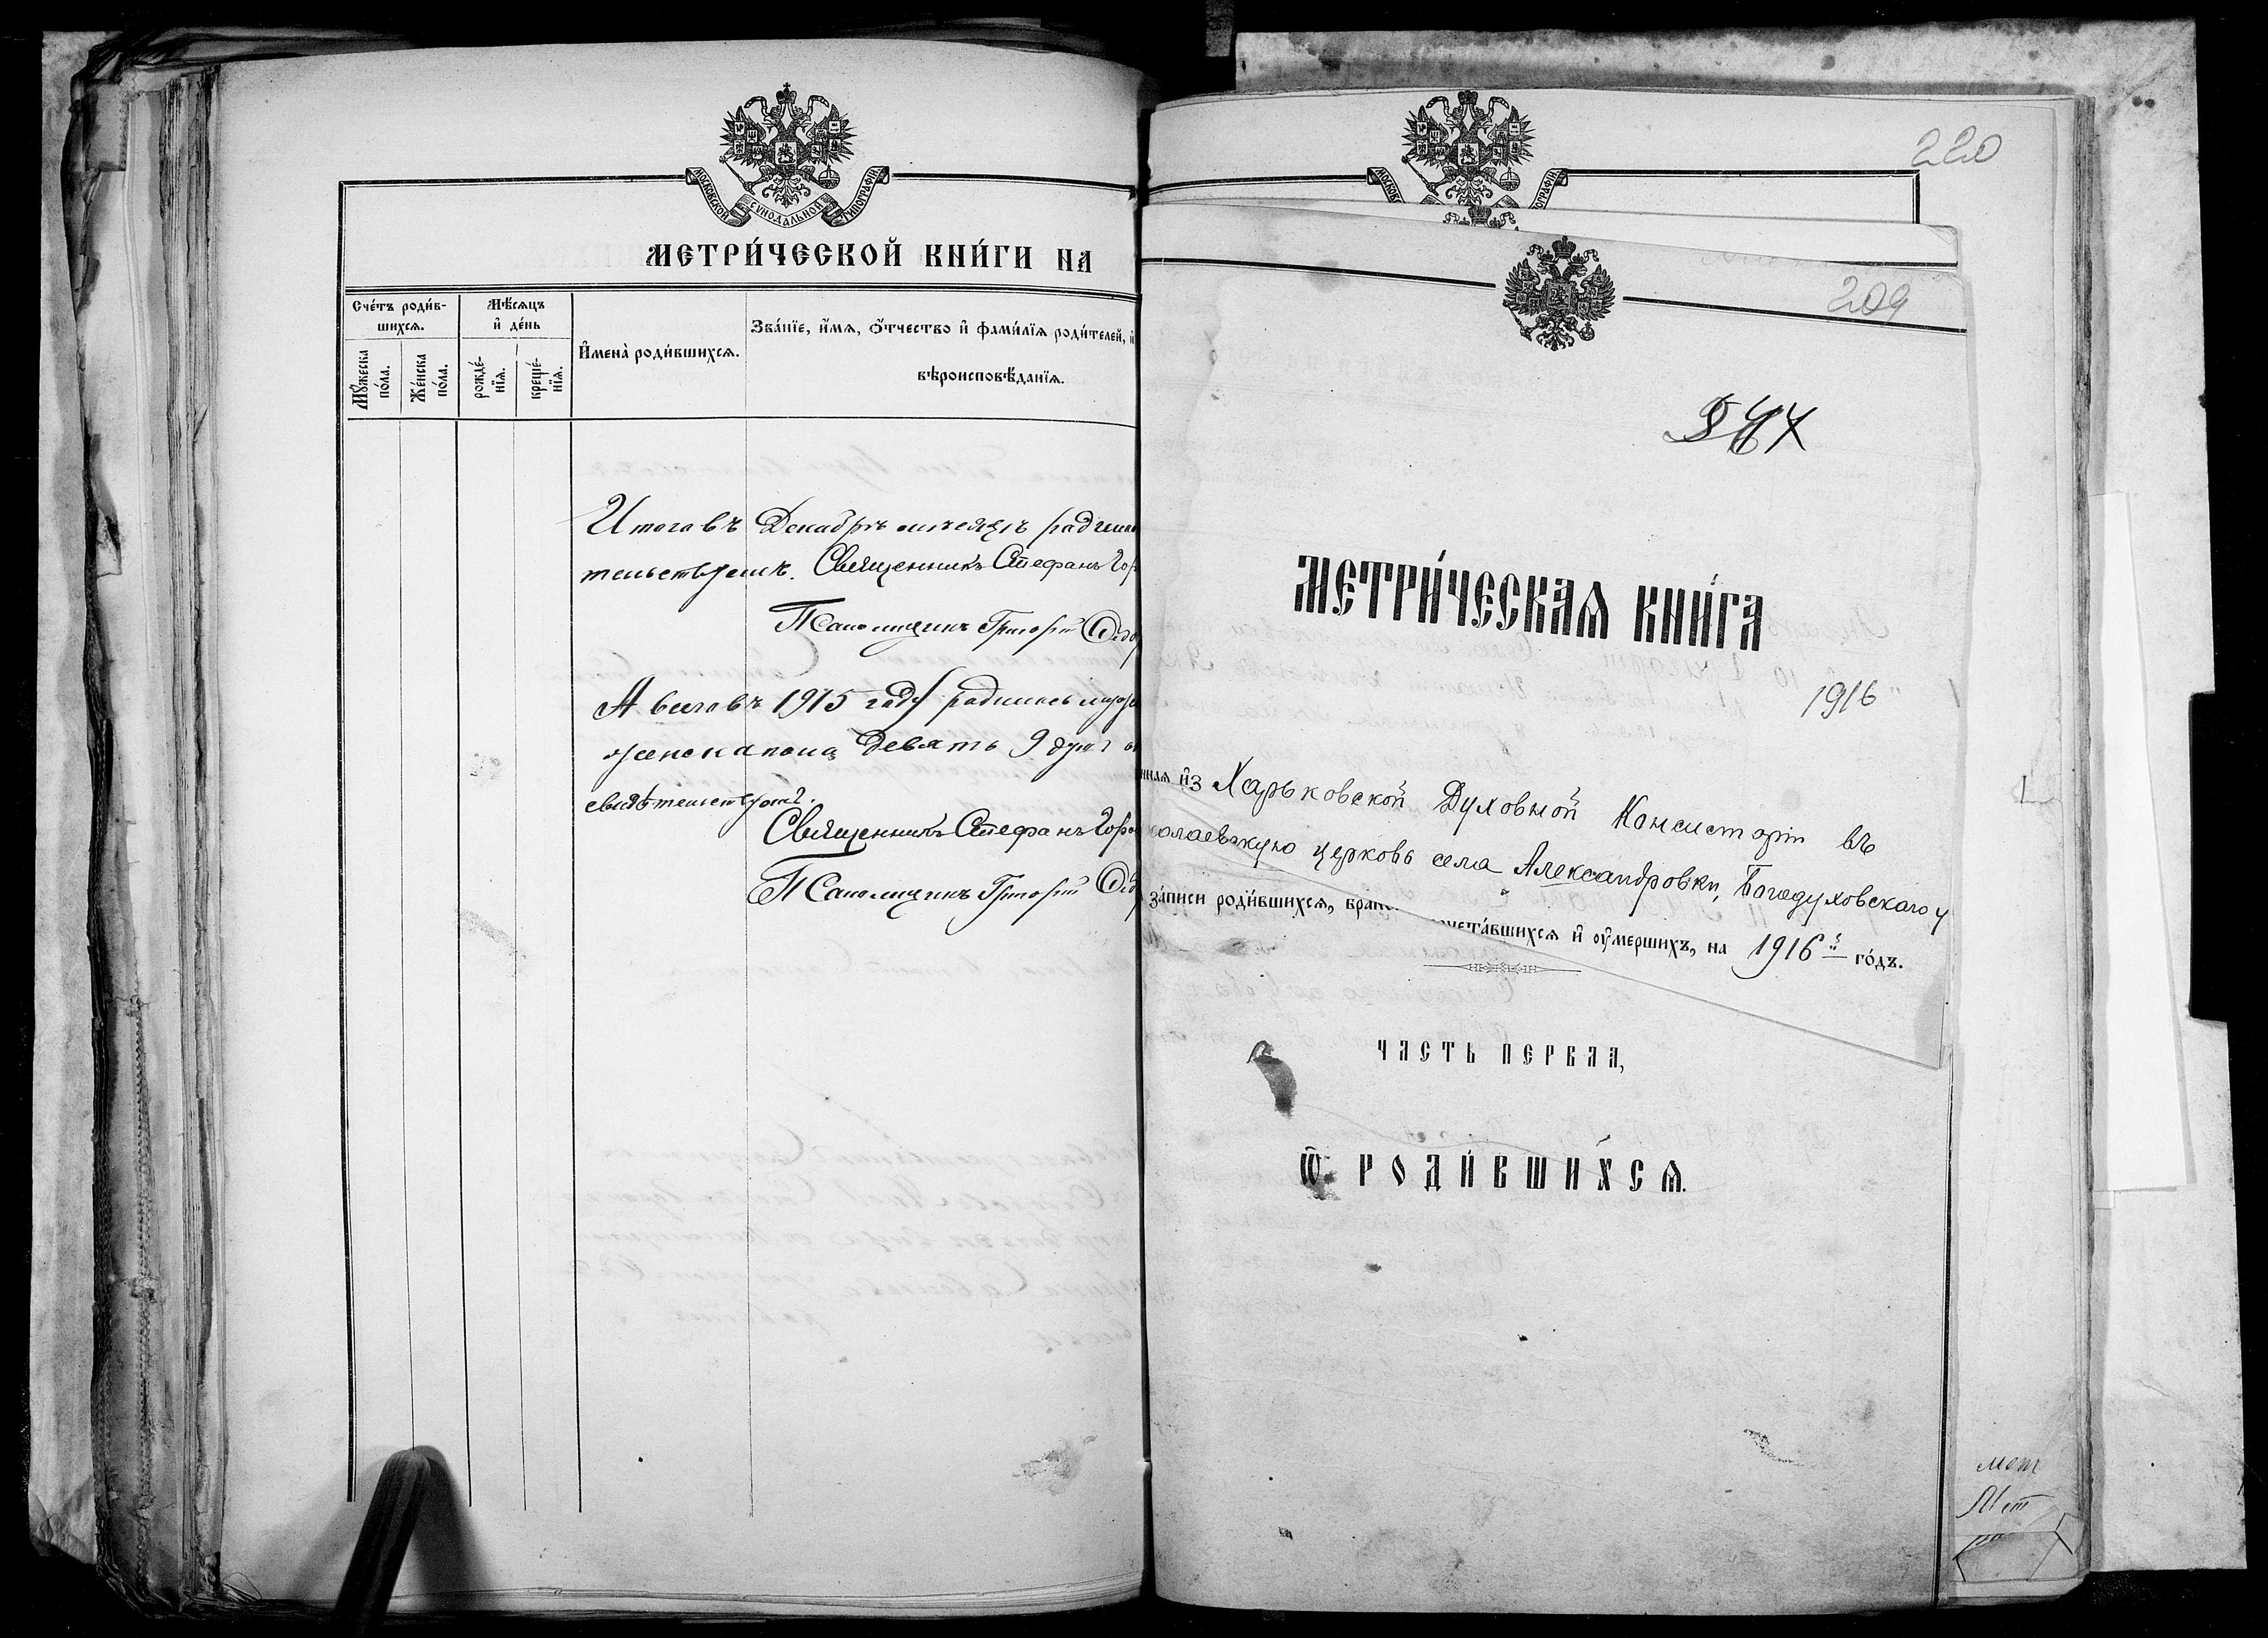 МОСКОВСКОЙ СѴНОДАЛЬНОЙ ТИПОГРАФІИ
МЕТРИ́ЧЕСКОЙ КНИ́ГИ НА
Сче́тъ роди́в-
шихсѧ.
Мѣ́сѧцъ
и҆ де́нь
И҆мена̀ роди́вшихсѧ.
Зва́нїе, и҆́мѧ, ѻ҆́тчество и҆ фами́лїѧ роди́телей, и҆
вѣроисповѣ́данїѧ.
Мꙋ́жеска
по́ла.
Же́нска
по́ла.
рожде́-
нїѧ.
креще́-
нїѧ.
Итого въ Декабрѣ мѣсяцѣ
Священникъ Стефанъ Гор
Псаломщикъ Григорій Ѳедо
А всего въ 1915 году родилось
женска пола девять 9 душ
свидѣтельствуютъ.
Священникъ Стефанъ Горо
Псаломщикъ Григорій Ѳед
МОСКОВ
ОГРАФІИ
220
209
МЕТРИ́ЧЕСКАѦ КНИ́ГА
1916
ннаѧ и҆з Харьковской Духовной Консисторіи въ
колаевскую церковь села Александровки, Богодуховскаго у
за́писи роди́вшихсѧ, брако
чета́вшихсѧ и҆ ᲂу҆мершихъ, на 1916й го́дъ.
ЧАСТЬ ПЕРВАѦ,
Ѽ РОДИ́ВШИ́ХСѦ.
мет
Мет